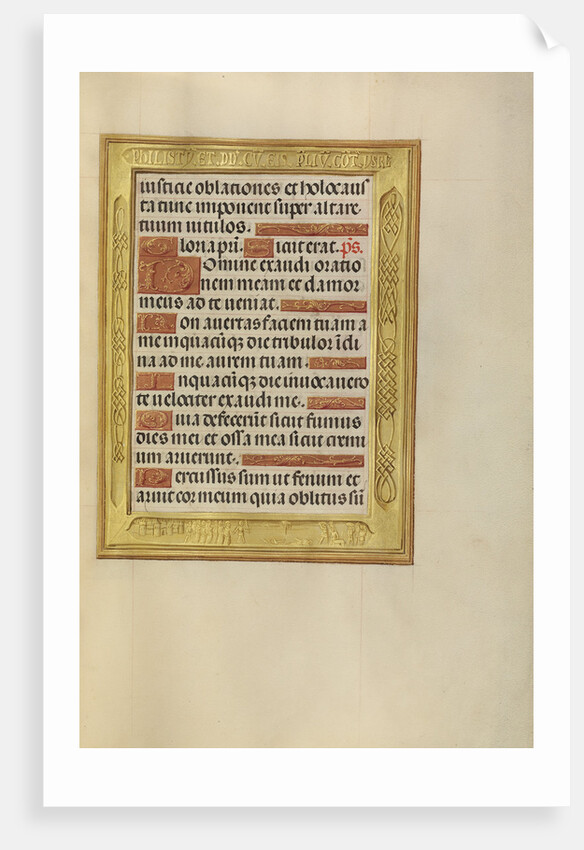 PHILISTV. ET. DD. CV. EIS
iusticie oblationes et holocaus
ta tunc imponent super altare
tuum uitulos.
Gloria pri. Sicut erat. ps.
Domine exaudi oratio
nem meam et clamor
meus ad te ueniat.
Non auertas faciem tuam a
me in quacūqz die tribulor ī di
na ad me aurem tuam.
Inquacūqz die inuocauero
te uelociter exaudi me.
Quia defecerūt sicut fumus
dies mei et ossa mea sicut cremi
um aruerunt.
Percussus sum ut fenum et
aruit cor meum quia oblitus sū